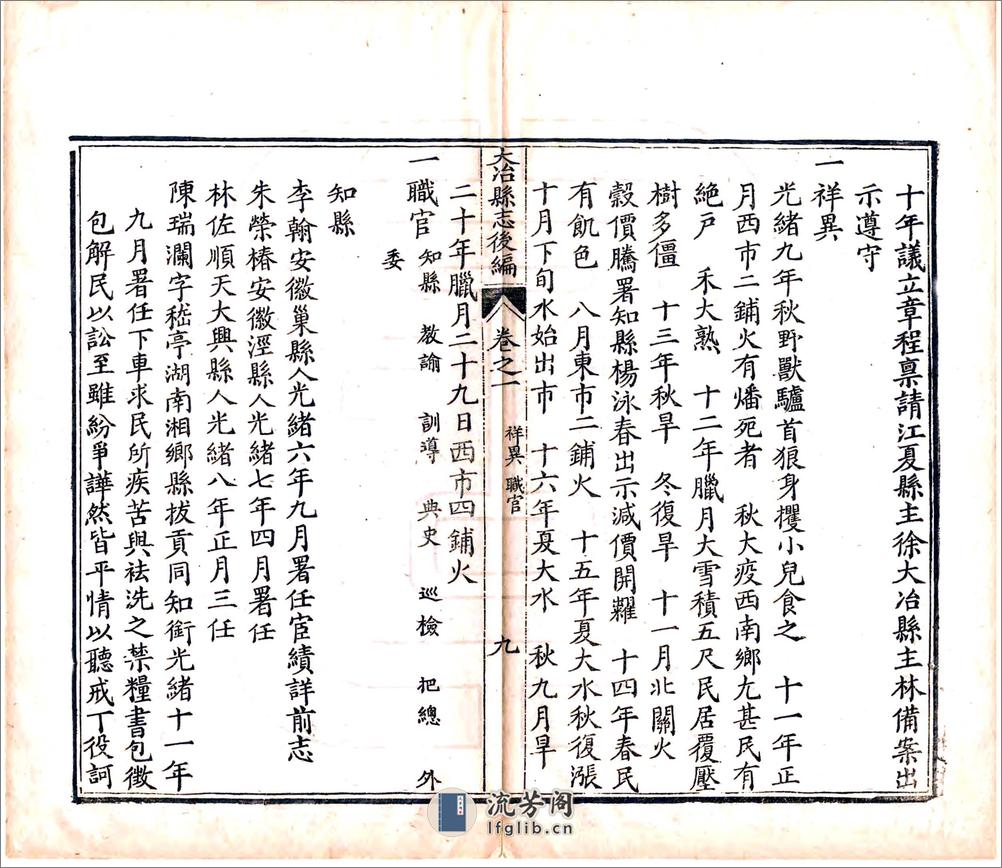 十年議立章程禀請江夏縣主徐大冶縣主林備案出
示遵守
一祥異
光緒九年秋野獸驢首狼身攫小兒食之　十一年正
月西市二鋪火有燔死者　秋大疫西南鄉尤甚民有
絶戸　禾大熟　十二年臘月大雪積五尺民居覆壓
樹多僵　十三年秋旱　冬復旱　十一月北關火
穀價騰署知縣楊泳春出示減價開糶　十四年春民
有飢色　八月東市二鋪火　十五年夏大水秋復漲
十月下旬水始出市　十六年夏大水　秋九月旱
大冶縣志後編　卷之一　祥異　職官　九
二十年臘月二十九日西市四鋪火
一職官 知縣　教諭　訓導　典史　巡檢　把總　外
委
知縣
李翰安徽巢縣人光緒六年九月署任宦績詳前志
朱榮椿安徽涇縣人光緒七年四月署任
林佐順天大興縣人光緒八年正月三任
陳瑞瀾字嵇亭湖南湘鄉縣拔貢同知銜光緒十一年
九月署任下車求民所疾苦與祛洗之禁糧書包徵
包解民以訟至雖紛爭譁然皆平情以聽戒丁役訶
流芳阁
lfglib.cn